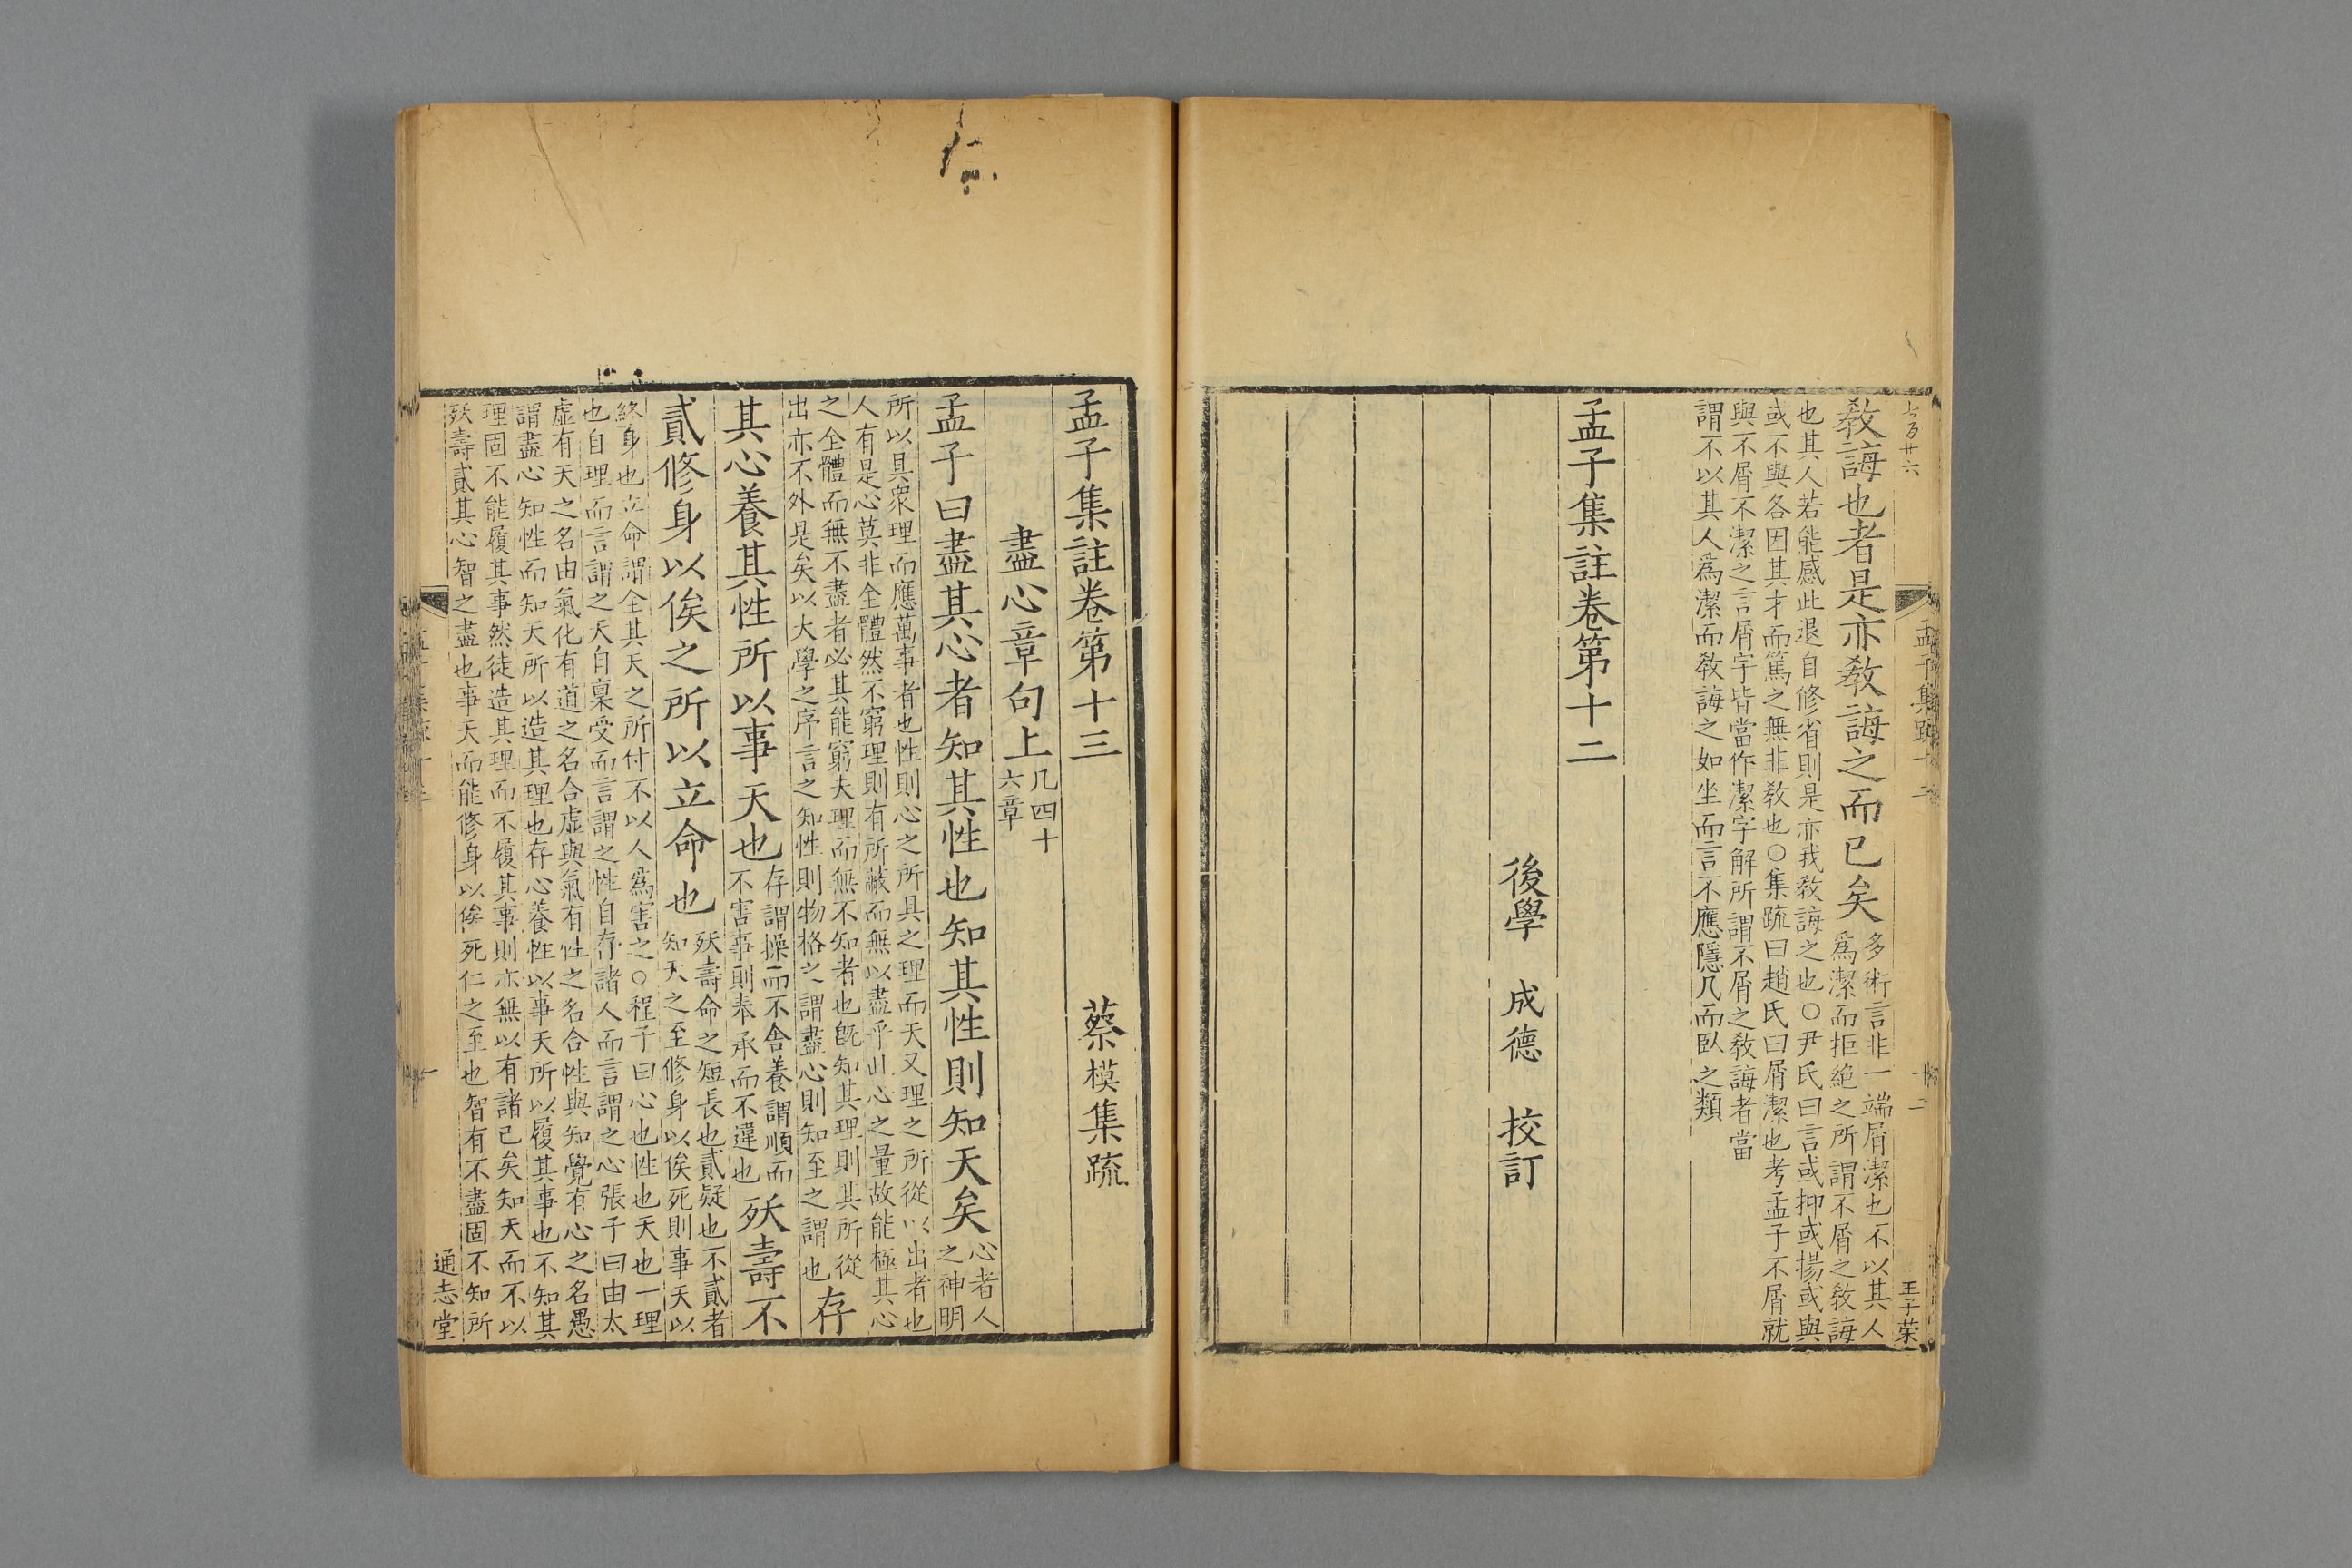 敎誨也者是亦敎誨之而已矣
多術言非一端屑潔也不以其人
爲潔而拒絶之所謂不屑之敎誨
也其人若能感此退自修省則是亦我敎誨之也○尹氏曰言或抑或揚或與
或不與各因其才而篤之無非敎也○集疏曰趙氏曰屑潔也考孟子不屑就
與不屑不潔之言屑字皆當作潔字解所謂不屑之敎誨者當
謂不以其人爲潔而敎誨之如坐而言不應隱几而臥之類
孟子集註卷第十二
後學 成德 校訂
王子荣
孟子集註卷第十三
蔡模集疏
盡心章句上
凡四十
六章
孟子曰盡其心者知其性也知其性則知天矣
心者人
之神明
所以具衆理而應萬事者也性則心之所具之理而天又理之所從以出者也
人有是心莫非全體然不窮理則有所蔽而無以盡乎此心之量故能極其心
之全體而無不盡者必其能窮夫理而無不知者也旣知其理則其所從
出亦不外是矣以大學之序言之知性則物格之謂盡心則知至之謂也
存
其心養其性所以事天也
存謂操而不舍養謂順而
不害事則奉承而不違也
殀壽不
貳修身以俟之所以立命也
殀壽命之短長也貳疑也不貳者
知天之至修身以俟死則事天以
終身也立命謂全其天之所付不以人爲害之○程子曰心也性也天也一理
也自理而言謂之天自稟受而言謂之性自存諸人而言謂之心張子曰由太
虛有天之名由氣化有道之名合虛與氣有性之名合性與知覺有心之名愚
謂盡心知性而知天所以造其理也存心養性以事天所以履其事也不知其
理固不能履其事然徒造其理而不履其事則亦無以有諸己矣知天而不以
殀壽貳其心智之盡也事天而能修身以俟死仁之至也智有不盡固不知所
通志堂